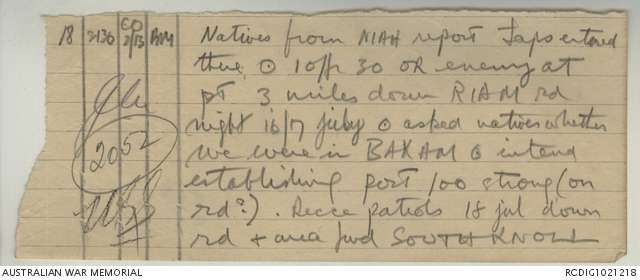 18 2130 CO 2/13 BM Natives from NIAH report Japs entered
there ⊙ 1 offr 30 OR enemy at
pt 3 miles down RIAM rd
night 16/7 July ⊙ asked natives whether
2052 we were in BAKAM ⊙ intend
establishing post 100 strong (on
rd?). Recce patrols 18 Jul down
rd + area fwd SOUTH KNOLL
AUSTRALIAN WAR MEMORIAL RCDIG1021218